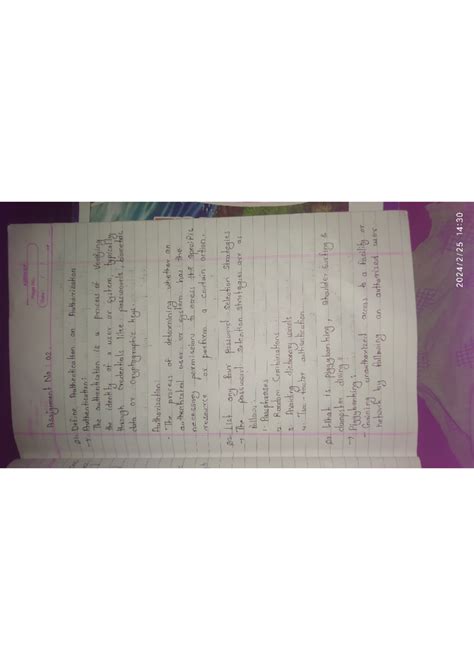 Assignment No : 02
Q1. Define Authentication an Authorization
→ Authentication:
The authentication is a process of verifying
the identity of a user or system, typically
through credentials like passwords, biometric
data or cryptographic keys.
Authorization:
The process of determining whether an
authenticated user or system has the
necessary permissions to access the specific
resource or perform a certain action.
Q2. List any four password selection strategies
→ The password selection strategies are as
follows,
1. Passphrases
2. Random Combinations
3. Avoiding dictionary words
4. Two factor authentication.
Q3. What is piggybanking, shoulder surfing &
dumpster diving?
→ Piggybanking:
Gaining unauthorized access to a facility or
network by following an authorized user
2024/2/25 14:30